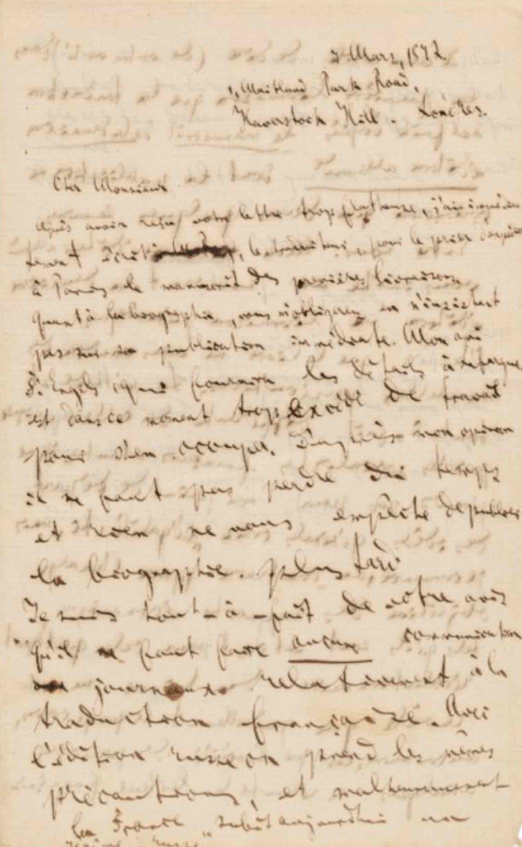 1 Mars, 1872.
1, Maitland Park Road,
Haverstock Hill. Londres.
Cher Monsieur
Après avoir reçu votre lettre trop flatteuse, j'ai
écrit le traducteur, pour le prier d'expédier
à Paris le manuscrit des premières livraisons
Quant à la biographie, vous m'obligerez en n'insistant
pas sur sa publication immédiate. Mon ami
F. Engels, qui fournira les détails
est dans ce moment trop excédé de travail
pour s'en occuper. D'après mon opinion
il ne faut pas perdre du temps
et rien ne nous empêche de publier
la biographie plus tard
Je suis tout-à-fait de votre avis
qu'il ne faut faire aucune communication
aux journaux relativement à la
traduction française. Avec
l'édition russe on prend les mêmes
précautions, et malheureusement
la France subit aujourd'hui un
régime russe